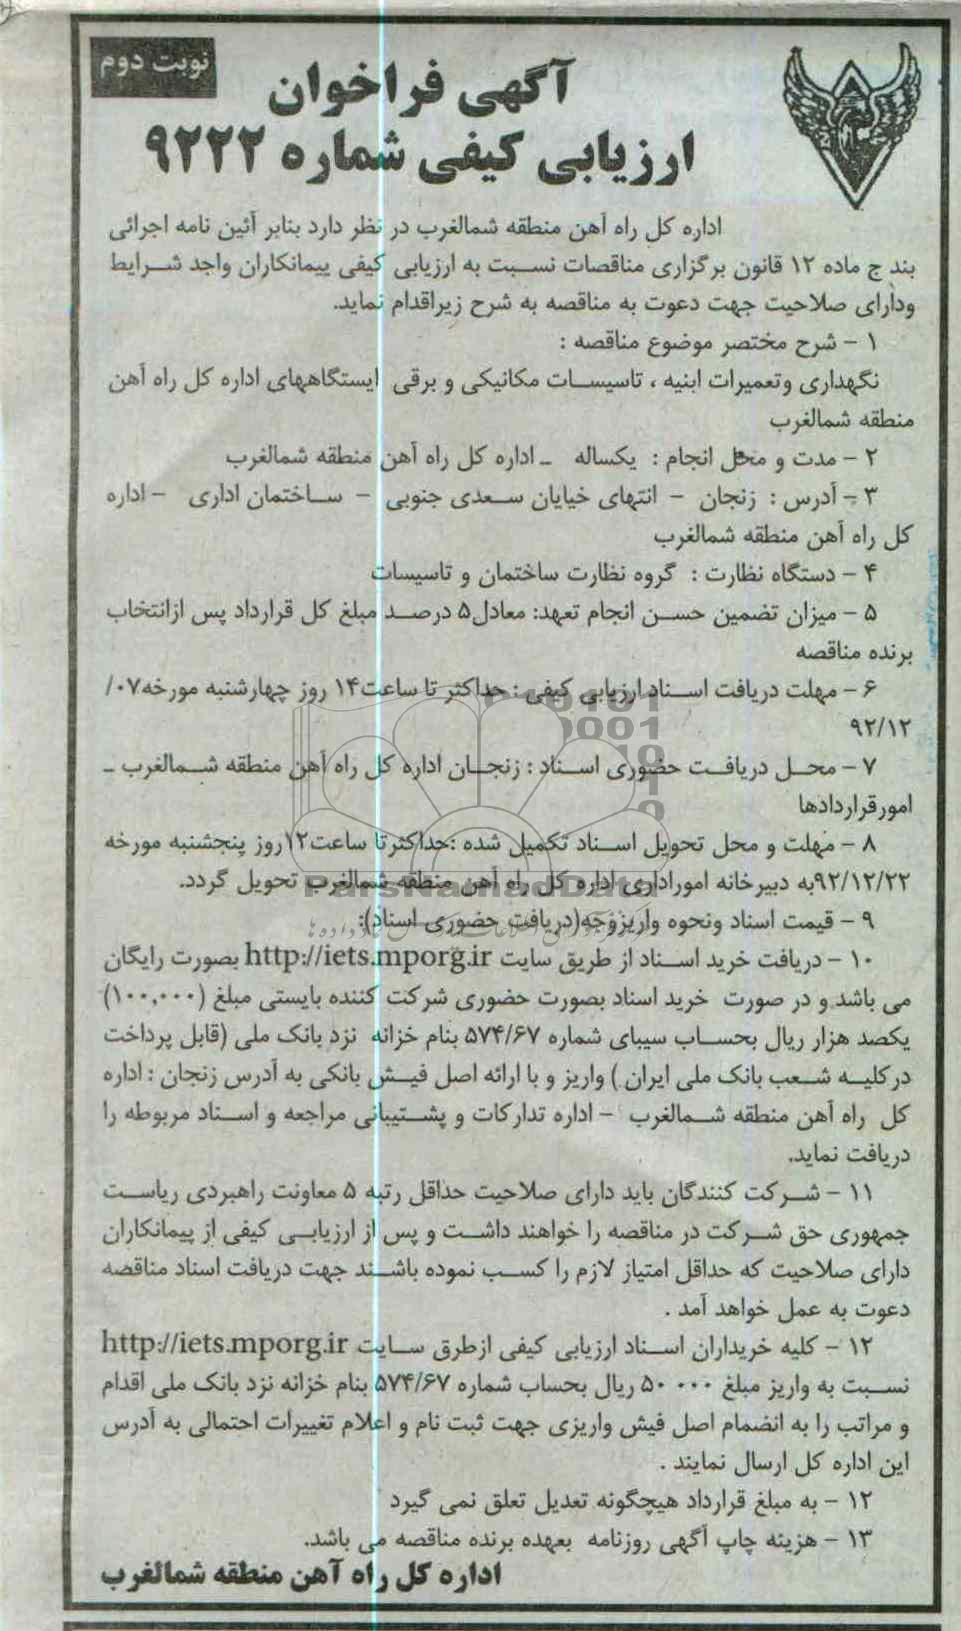 نوبت دوم
آگهی فراخوان
ارزیابی کیفی شماره ۹۲۲۲
اداره کل راه آهن منطقه شمالغرب در نظر دارد بنابر آئین نامه اجرائی
بند ج ماده ۱۲ قانون برگزاری مناقصات نسبت به ارزیابی کیفی پیمانکاران واجد شرایط
ودارای صلاحیت جهت دعوت به مناقصه به شرح زیراقدام نماید.
۱ - شرح مختصر موضوع مناقصه :
نگهداری وتعمیرات ابنیه ، تاسیسات مکانیکی و برقی ایستگاههای اداره کل راه آهن
منطقه شمالغرب
۲ - مدت و محل انجام : یکساله - اداره کل راه آهن منطقه شمالغرب
۳ - آدرس : زنجان - انتهای خیابان سعدی جنوبی - ساختمان اداری - اداره
کل راه آهن منطقه شمالغرب
۴ - دستگاه نظارت : گروه نظارت ساختمان و تاسیسات
۵ - میزان تضمین حسن انجام تعهد: معادل۵ درصد مبلغ کل قرارداد پس ازانتخاب
برنده مناقصه
۶ - مهلت دریافت اسناد ارزیابی کیفی : حداکثر تا ساعت۱۴ روز چهارشنبه مورخه۰۷/
۹۲/۱۲
۷ - محل دریافت حضوری اسناد : زنجان اداره کل راه آهن منطقه شمالغرب -
امورقراردادها
۸ - مهلت و محل تحویل اسناد تکمیل شده :حداکثرتا ساعت۱۲روز پنجشنبه مورخه
۹۲/۱۲/۲۲به دبیرخانه اموراداری اداره کل راه آهن منطقه شمالغرب تحویل گردد.
ParsNamadData
۹ - قیمت اسناد ونحوه واریزوجه(دریافت حضوری اسناد):
۱۰ - دریافت خرید اسناد از طریق سایت http://iets.mporg.ir بصورت رایگان
می باشد و در صورت خرید اسناد بصورت حضوری شرکت کننده بایستی مبلغ (۱۰۰,۰۰۰)
یکصد هزار ریال بحساب سیبای شماره ۵۷۴/۶۷ بنام خزانه نزد بانک ملی (قابل پرداخت
درکلیه شعب بانک ملی ایران ) واریز و با ارائه اصل فیش بانکی به آدرس زنجان : اداره
کل راه آهن منطقه شمالغرب - اداره تدارکات و پشتیبانی مراجعه و اسناد مربوطه را
دریافت نماید.
۱۱ - شرکت کنندگان باید دارای صلاحیت حداقل رتبه ۵ معاونت راهبردی ریاست
جمهوری حق شرکت در مناقصه را خواهند داشت و پس از ارزیابی کیفی از پیمانکاران
دارای صلاحیت که حداقل امتیاز لازم را کسب نموده باشند جهت دریافت اسناد مناقصه
دعوت به عمل خواهد آمد .
۱۲ - کلیه خریداران اسناد ارزیابی کیفی ازطرق سایت http://iets.mporg.ir
نسبت به واریز مبلغ ۵۰۰۰۰ ریال بحساب شماره ۵۷۴/۶۷ بنام خزانه نزد بانک ملی اقدام
و مراتب را به انضمام اصل فیش واریزی جهت ثبت نام و اعلام تغییرات احتمالی به آدرس
این اداره کل ارسال نمایند .
۱۲ - به مبلغ قرارداد هیچگونه تعدیل تعلق نمی گیرد
۱۳ - هزینه چاپ آگهی روزنامه بعهده برنده مناقصه می باشد.
اداره کل راه آهن منطقه شمالغرب